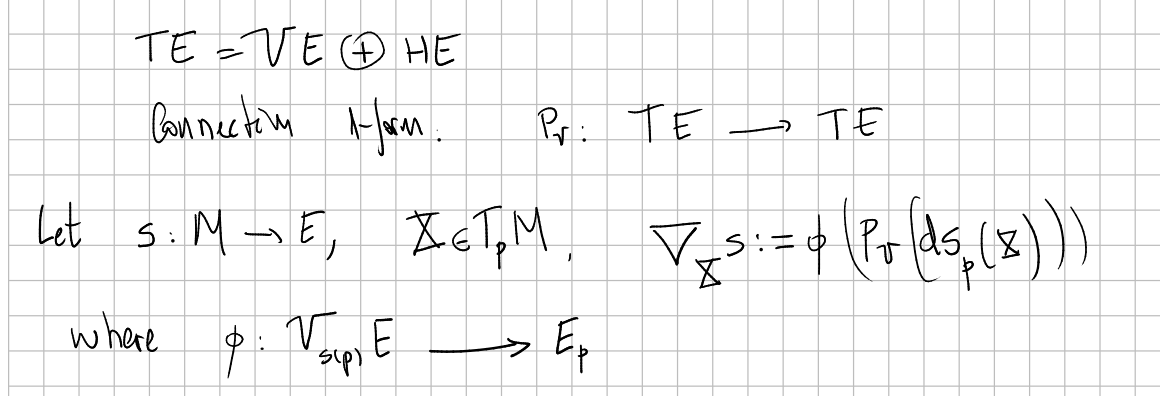 TE = VE ⊕ HE
Connection 1-form. Pv: TE → TE
Let s: M → E, X ∈ TpM, ∇_X s := ϕ(Pv(ds_p(X)))
where ϕ: V_{s(p)}E → E_p